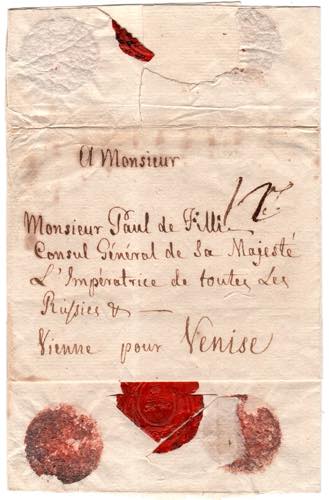 A Monsieur
Monsieur Paul de Filli
Consul Général de Sa Majesté
L'Impératrice de toutes Les
Russies & —
Vienne pour Venise